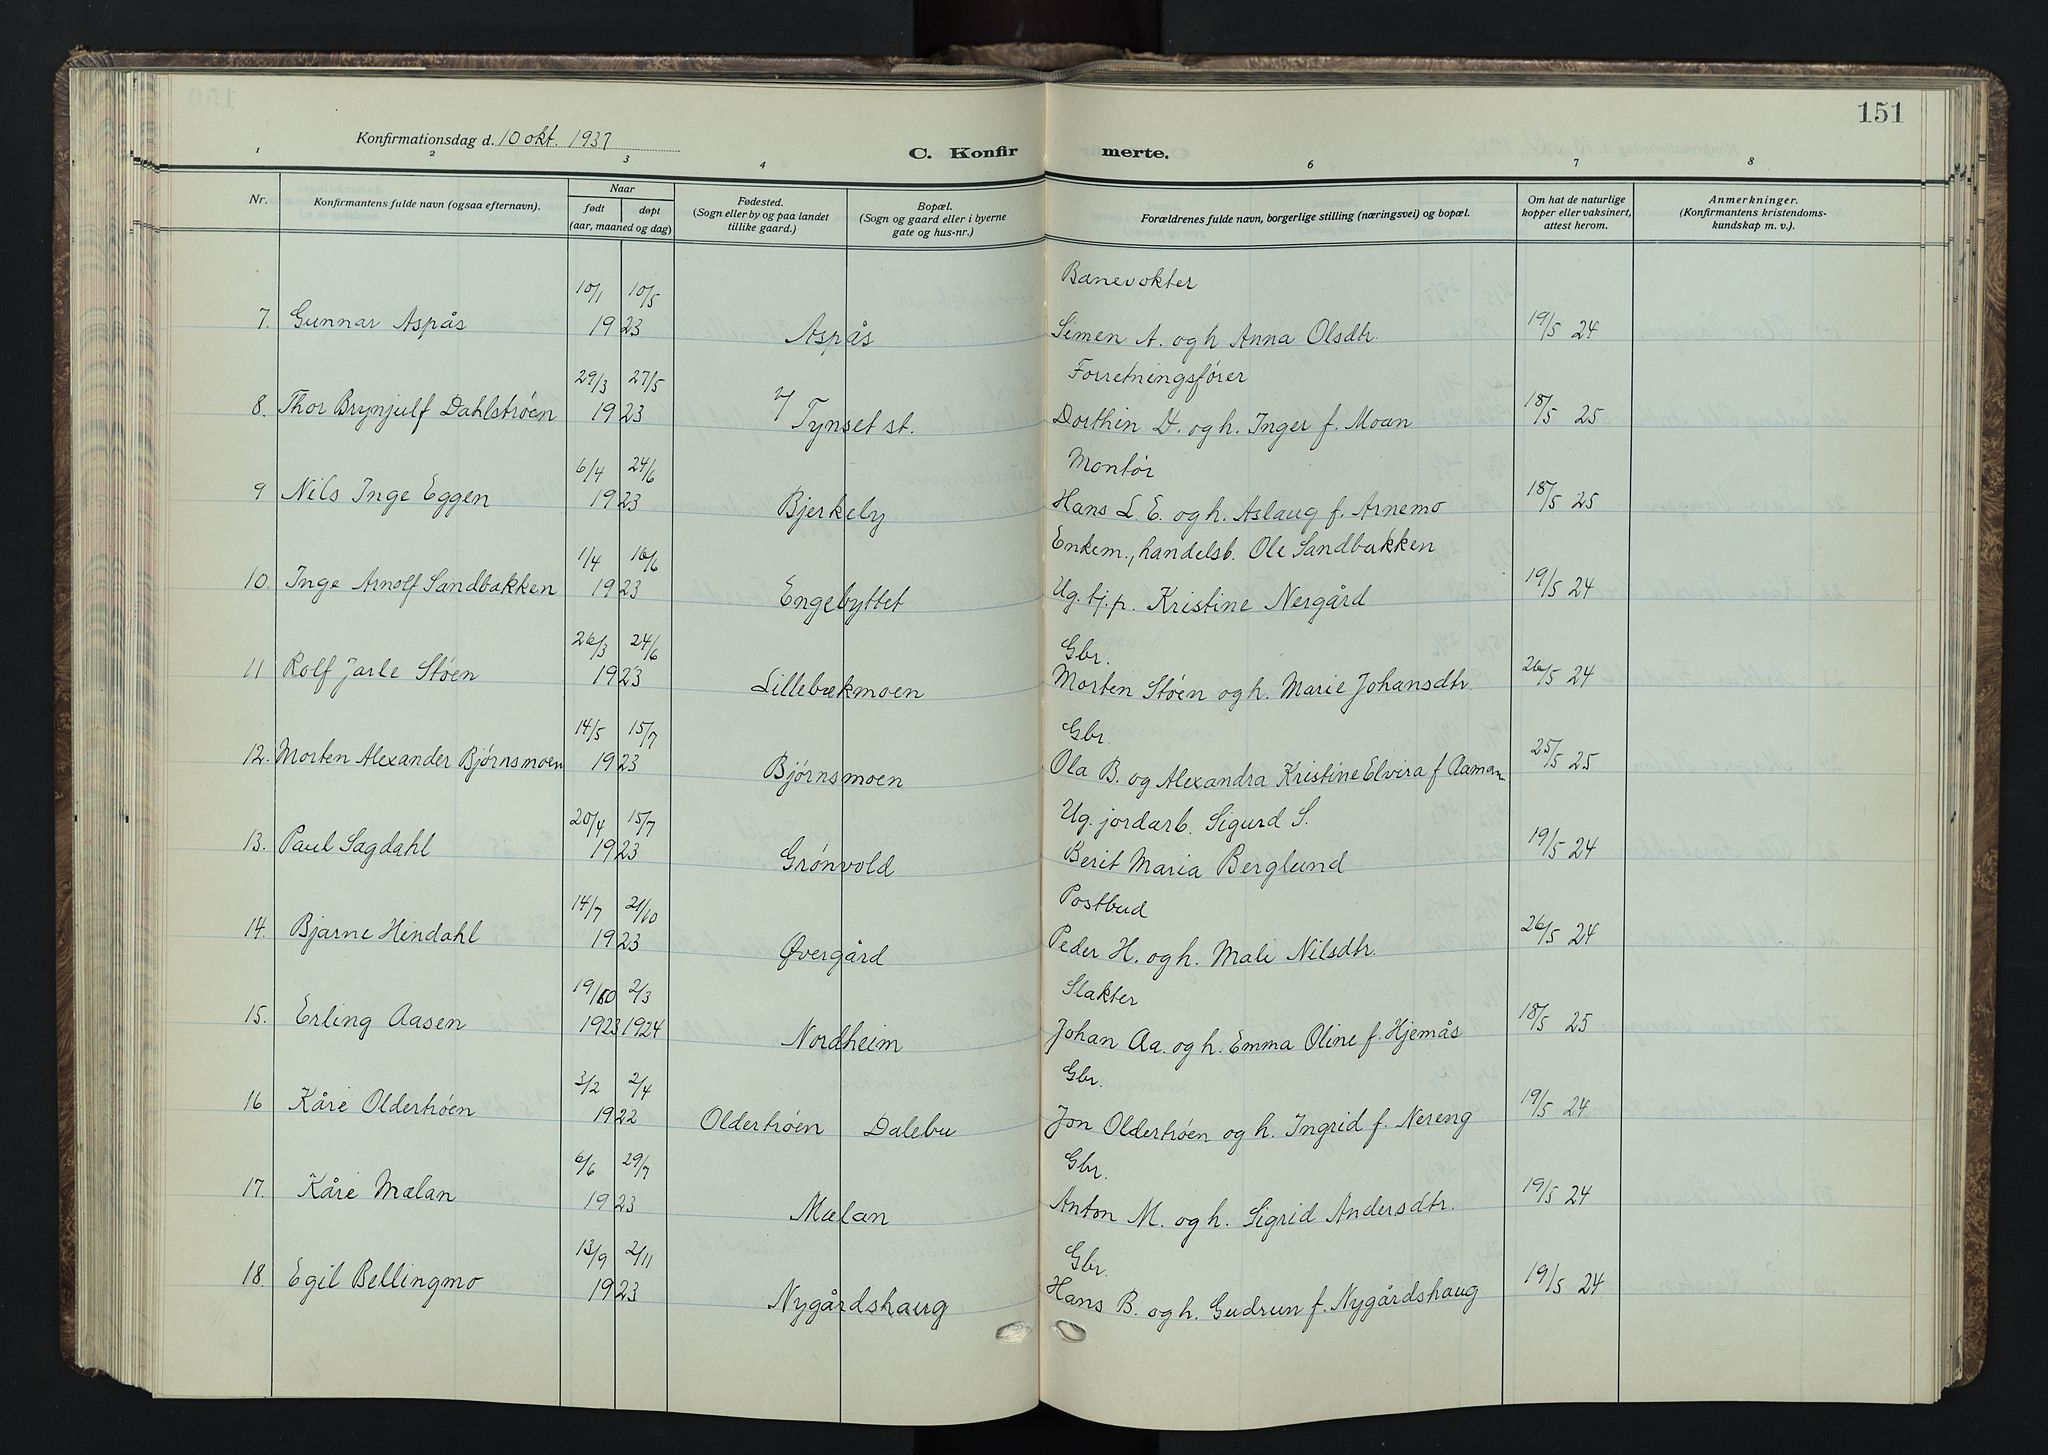 151
Konfirmationsdag d. 10 okt. 1937
C. Konfirmerte.
1 2 3 4 6 7 8
Nr.
Konfirmantens fulde navn (ogsaa efternavn).
Naar
født døpt
(aar, maaned og dag)
Fødested.
(Sogn eller by og paa landet
tillike gaard.)
Bopæl.
(Sogn og gaard eller i byerne
gate og hus-nr.)
Forældrenes fulde navn, borgerlige stilling (næringsvei) og bopæl.
Om hat de naturlige
kopper eller vaksinert,
attest herom.
Anmerkninger.
(Konfirmantens kristendoms-
kundskap m. v.).
10/1 10/5 Banevokter
7. Gunnar Aspås 1923 Aspås Simen A. og h. Anna Olsdtr. 19/5 24
29/3 27/5 Forretningsfører
8. Thor Brynjulf Dahlstrøen 1923 Tynset st. Dorthin D. og h. Inger f. Moan 18/5 25
6/4 24/6 Montør
9 Nils Inge Eggen 1923 Bjerkely Hans L. E. og h. Aslaug f. Arnemo 18/5 25
1/4 16/6 Enkem., handelsb. Ole Sandbakken
10. Inge Arnolf Sandbakken 1923 Engebyttet Ug. tj.p. Kristine Nergård 19/5 24
26/3 24/6 Gbr.
11 Rolf Jarle Støen 1923 Lillebækmoen Morten Støen og h. Marie Johansdtr. 26/5 24
14/5 15/7 Gbr.
12. Morten Alexander Bjørnsmoen 1923 Bjørnsmoen Ola B. og Alexandra Kristine Elvira f Aaman 25/5 25
20/4 15/7 Ug. jordarb. Sigurd S.
13. Paul Sagdahl 1923 Grønvold Berit Maria Berglund 19/5 24
14/7 21/10 Postbud
14. Bjarne Hendahl 1923 Øvergård Peder H. og h. Mali Nilsdtr. 26/5 24
19/10 2/3 Slakter
15. Erling Aasen 1923 1924 Nordheim Johan Aa. og h. Emma Oline f. Hjemås 18/5 25
3/2 2/4 Gbr.
16 Kåre Oldertrøen 1922 Oldertrøen Dalebu Jon Oldertrøen og h. Ingrid f. Nereng 19/5 24
6/6 29/7 Gbr.
17. Kåre Mælan 1923 Mælan Anton M. og h. Sigrid Andersdtr. 19/5 24
13/9 2/11 Gbr.
18. Egil Bellingmo 1923 Nygårdshaug Hans B. og h. Gudrun f. Nygårdshaug 19/5 24